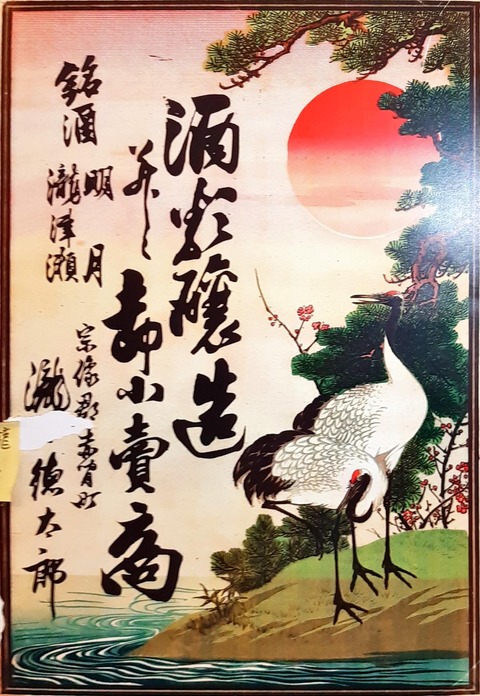 酒類釀造
并ニ卸小賣商
銘酒
明月
瀧津瀬
宗像郡赤間町
瀧 德太郎